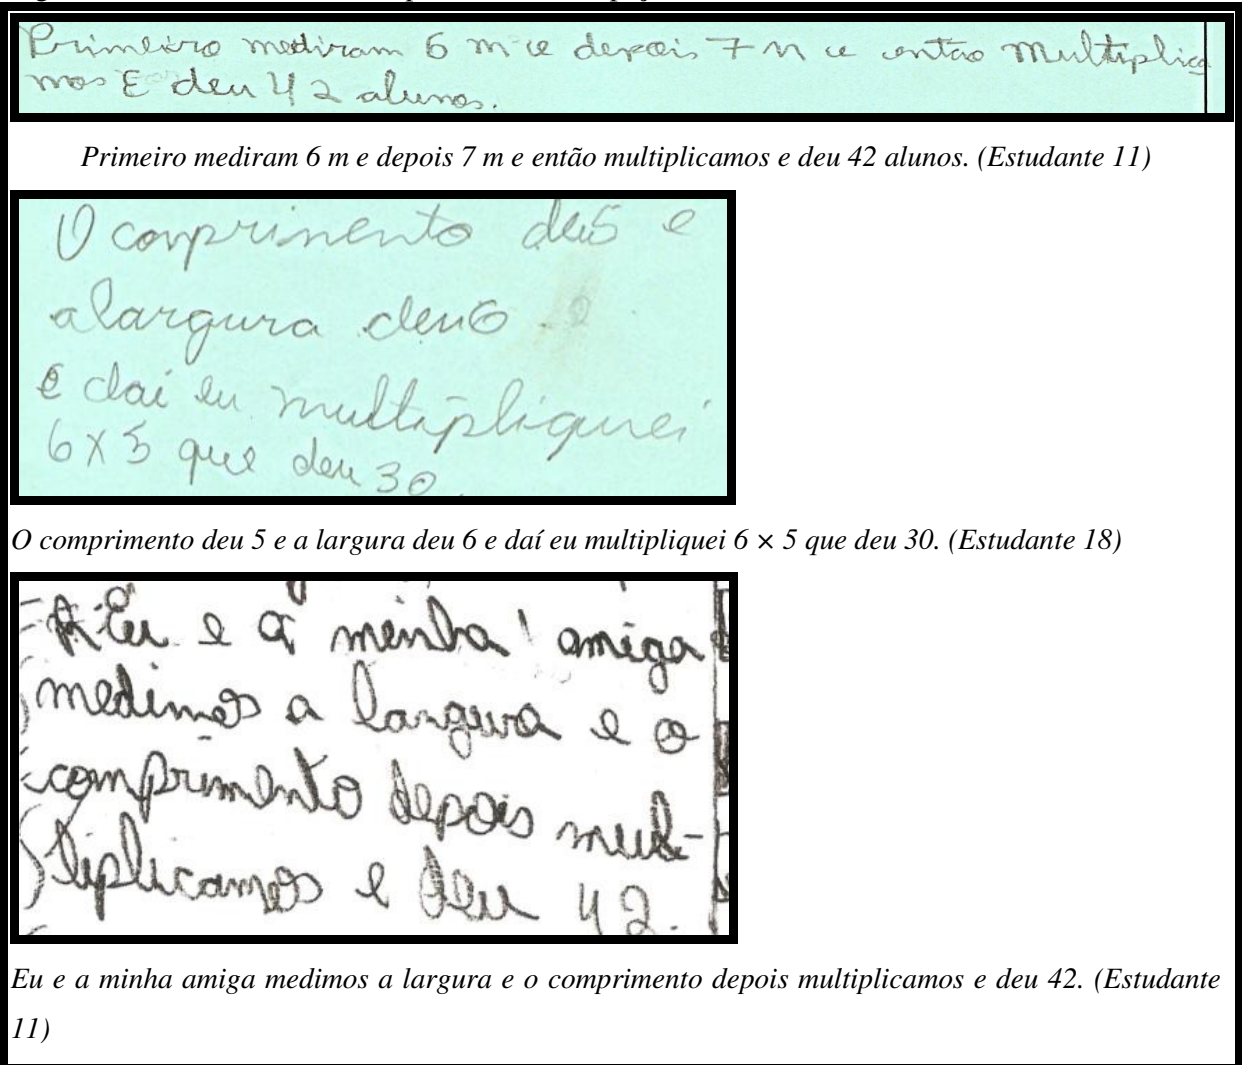 Primeiro mediram 6 m e depois 7 m e então Multiplica
mos E deu 42 alunos.
Primeiro mediram 6 m e depois 7 m e então multiplicamos e deu 42 alunos. (Estudante 11)
O comprimento deu 5 e
a largura deu 6 e
e daí eu multipliquei
6 X 5 que deu 30.
O comprimento deu 5 e a largura deu 6 e daí eu multipliquei 6 × 5 que deu 30. (Estudante 18)
Eu e a minha amiga
medimos a largura e o
comprimento depois mul-
tiplicamos e deu 42.
Eu e a minha amiga medimos a largura e o comprimento depois multiplicamos e deu 42. (Estudante
11)